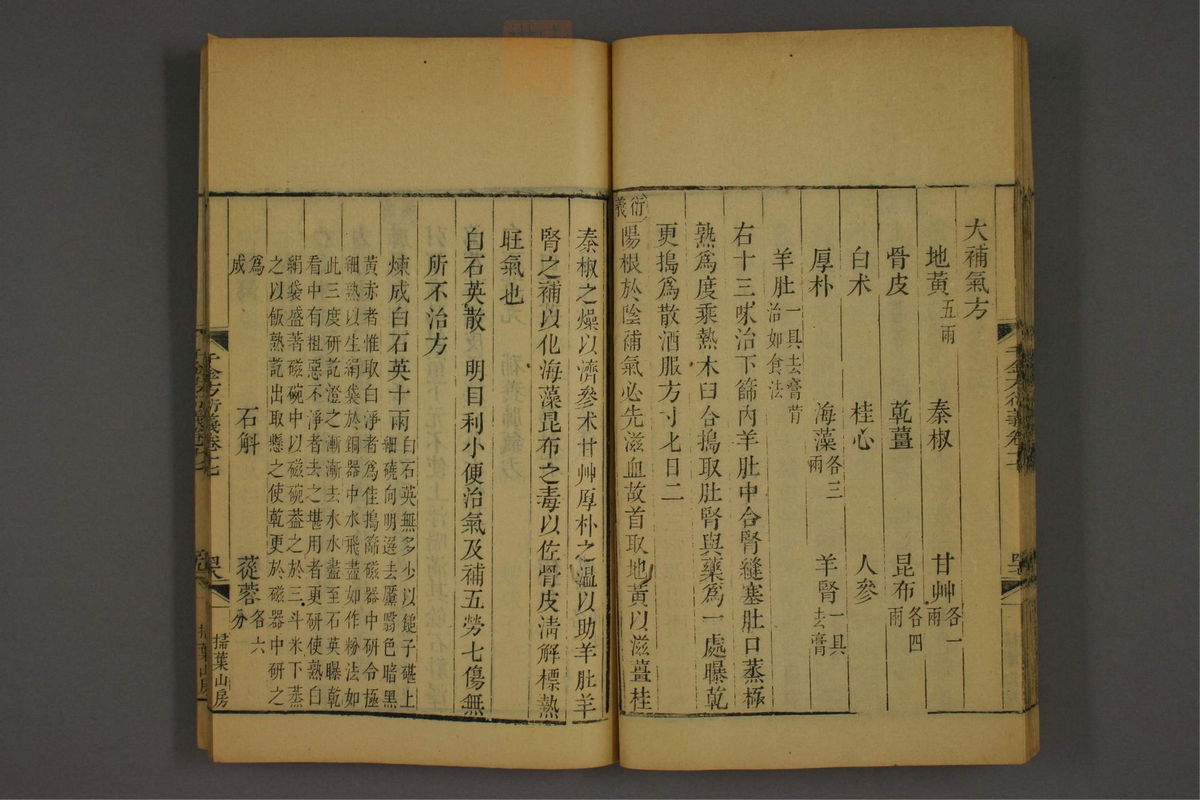 大補氣方
地黃五兩 秦椒 甘艸各一兩
骨皮 乾薑 昆布各四兩
白术 桂心 人參
厚朴 海藻各三兩 羊腎一具去膏
羊肚一具去膏膋治如食法
右十三味治下篩內羊肚中合腎縫塞肚口蒸極
熟爲度乘熱木臼合搗取肚腎與藥爲一處曝乾
更搗爲散酒服方寸七日二
衍義陽根於陰補氣必先滋血故首取地黃以滋薑桂
秦椒之燥以濟參术甘艸厚朴之溫以助羊肚羊
腎之補以化海藻昆布之毒以佐骨皮淸解標熱
旺氣也
白石英散 明目利小便治氣及補五勞七傷無
所不治方
煉成白石英十兩白石英無多少以鎚子碪上
細磽向明選去䵝翳色暗黑
黃赤者惟取白淨者爲佳搗篩磁器中研令極
細熟以生絹袋於銅器中水飛盡如作粉法如
此三度研訖澄之漸漸去水水盡至石英曝乾
看中有粗惡不淨者去之堪用者更研使熟白
絹袋盛著磁碗中以磁碗蓋之於三斗米下蒸
之以飯熟訖出取懸之使乾更於磁器中研之
爲成 石斛 蓯蓉各六分
千金方衍義卷十七
掃葉山房